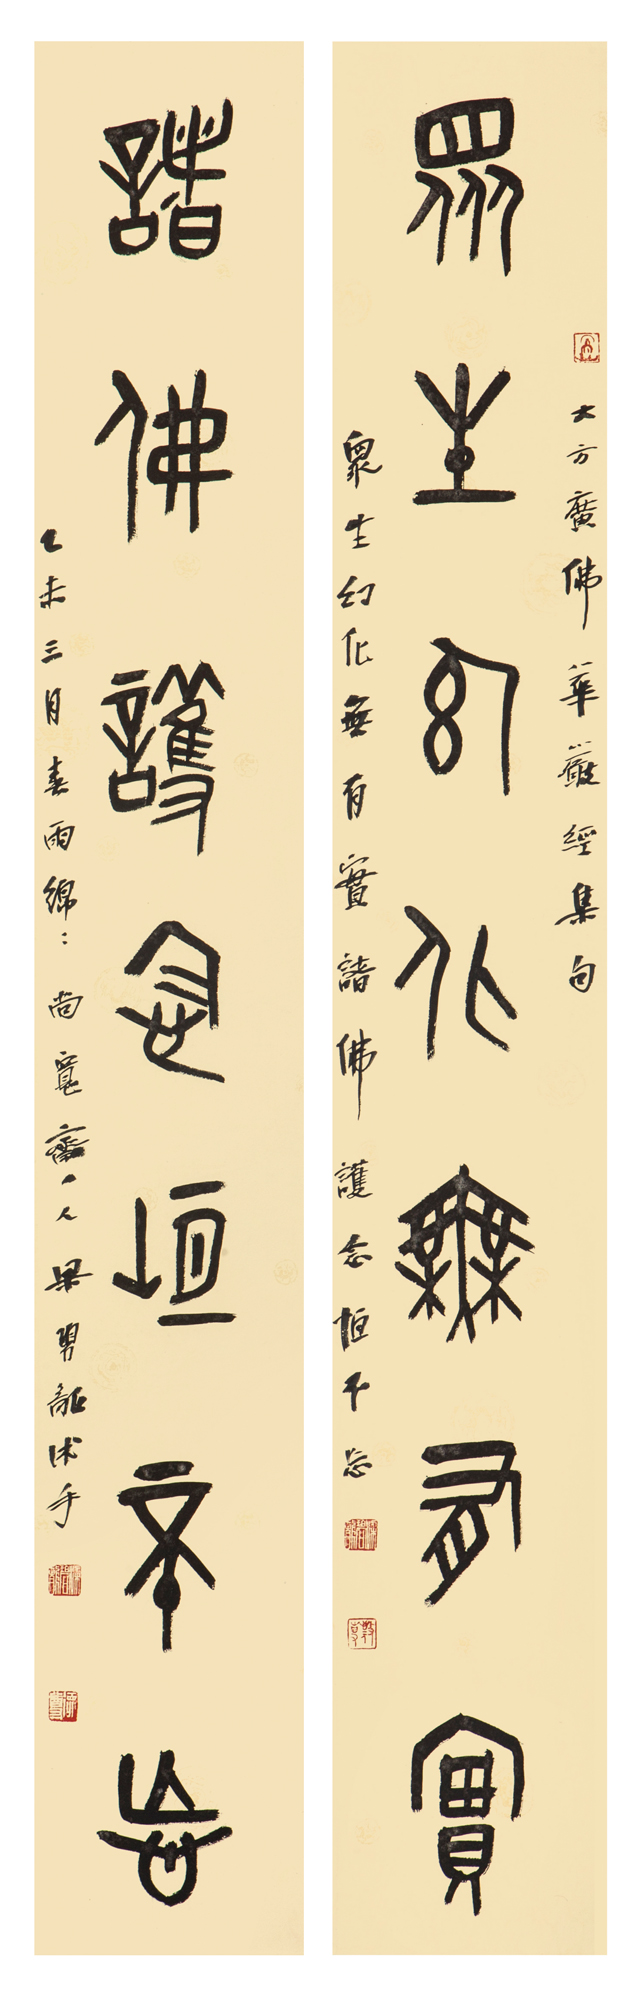 大方廣佛華嚴經集句
眾生幻化無有實
眾生幻化無有實諸佛護念恒不忘
諸佛護念恒不忘
乙未三月春雨綿〻尚寬齋人梁沐手